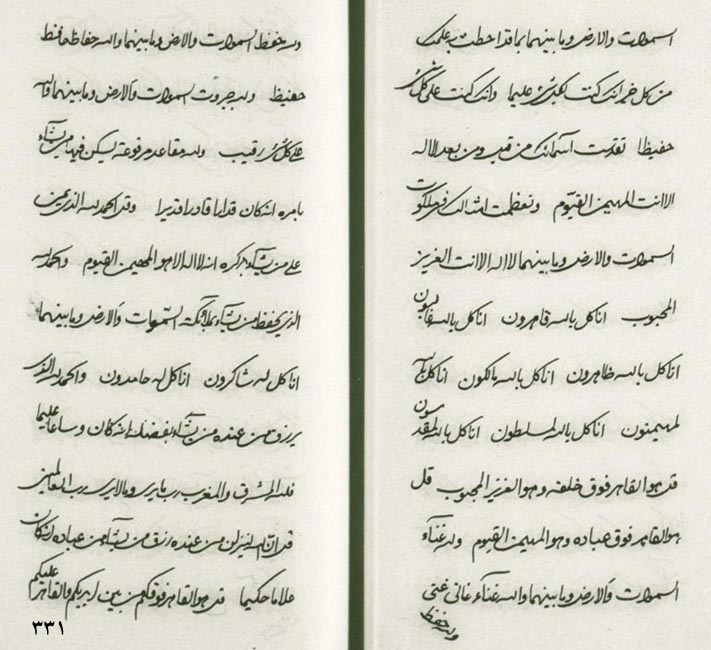 السموات والارض وما بينهما بما قد احطت به علمك
من كل خير انك كنت بكل شيء عليما وانك كنت على كل شيء
حفيظا تقدست اسمائك من قبل ومن بعد لا اله
الا انت المهيمن القيوم وتعظمت امثالك في ملكوت
السموات والارض وما بينهما لا اله الا انت العزيز
المحبوب انا كل بالله قاهرون انا كل بالله غالبون
انا كل بالله ظاهرون انا كل بالله مالكون انا كل بالله
لمهيمنون انا كل بالله لمسلطون انا كل بالله لمقدسون
قل هو القاهر فوق خلقه وهو العزيز المحبوب قل
هو القاهر فوق عباده وهو المهيمن القيوم ولله غناء
السموات والارض وما بينهما والله غناء غانى غنى
ولله حفظ
ولله حفظ السموات والارض وما بينهما والله حفاظ حافظ
حفيظ ولله جبروت السموات والارض وما بينهما والله
على كل شيء رقيب ولله مقاعد مرفوعة يسكن فيها من يشاء
بامره انه كان قداما قادرا قديرا وقل الحمد لله الذي يمن
على من يشاء بذكره انه لا اله الا هو المهيمن القيوم والحمد لله
الذي يحفظ من يشاء بملائكة السموات والارض وما بينهما
انا كل له شاكرون انا كل له حامدون والحمد لله الذي
يرزق من عنده من يشاء بفضله انه كان وساعا عليما
فلله المشرق والمغرب رب ما يرى وما لا يرى رب العالمين
قل الله لينزلن من عنده رزق من يشاء من عباده انه كان
علاما حكيما قل هو القاهر فوقكم من بين ايديكم والقاهر عليكم
٣٣١